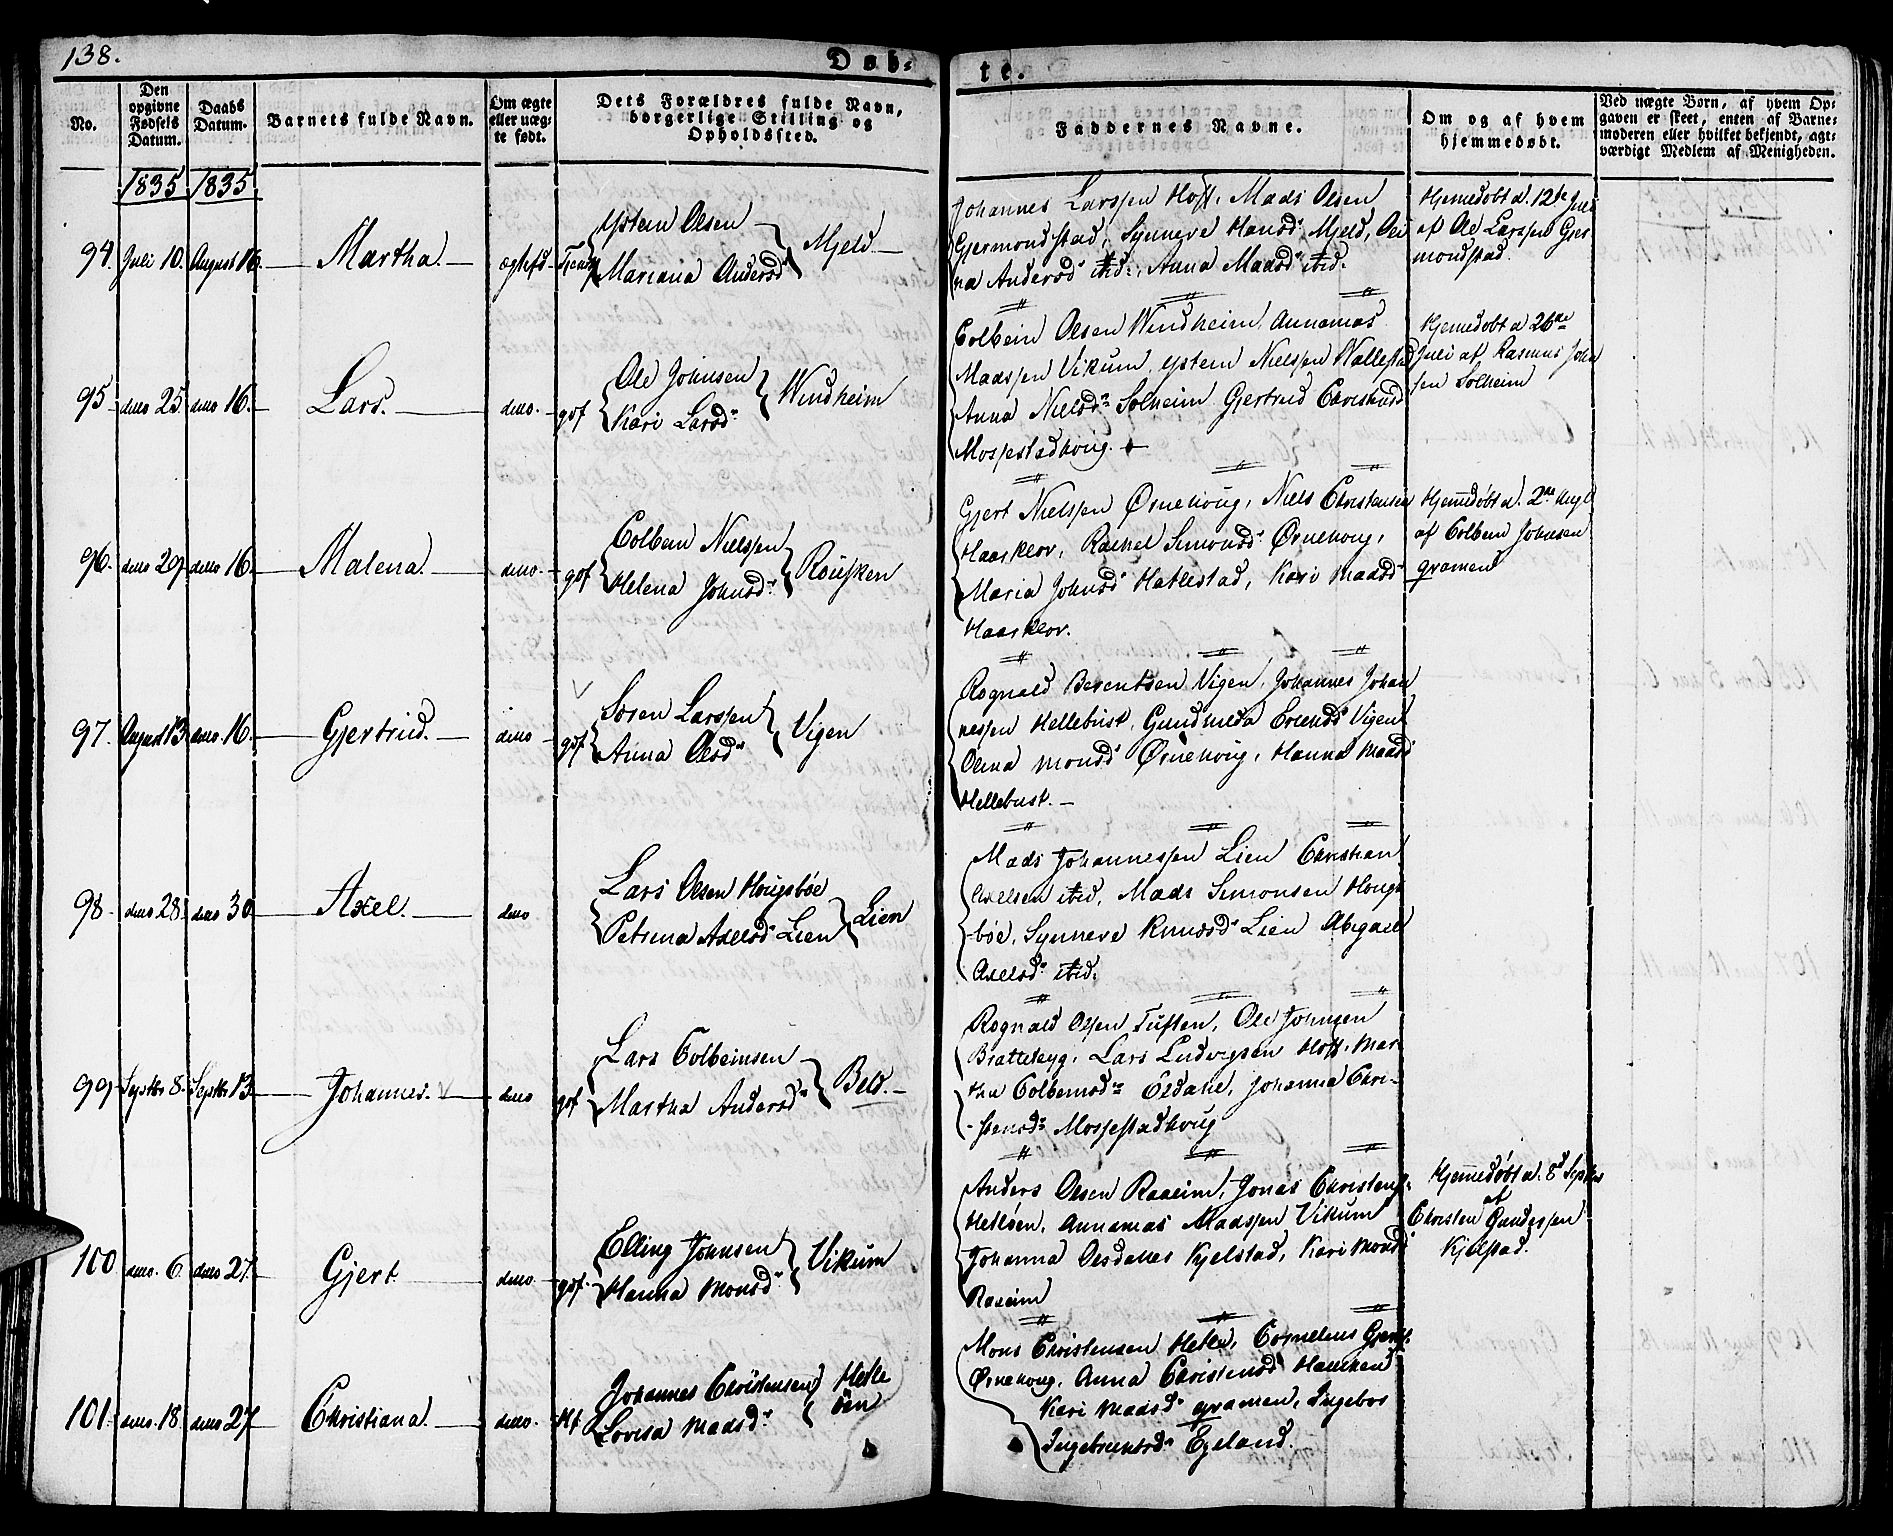 138.
Døb-
te.
No.
Den opgivne Fødsels Datum.
Daabs Datum.
Barnets fulde Navn.
Om ægte eller uægte født.
Dets Forældres fulde Navn, borgerlige Stilling og Opholdssted.
Faddernes Navne.
Om og af hvem hjemmedøbt.
Ved uægte Børn, af hvem Opgaven er skeet, enten af Barnemoderen eller hvilket bekjendt, agtværdigt Medlem af Menigheden.
1835 1835
94. Juli 10. August 16. Martha.
Ystein Olsen
Mariana Andersd
Mjeld
Johannes Larssen Hoff, Mads Olsen
Gjermondstad, Synneve Hansd Mjeld, Oli
na Andersd ibid. Anna Madsd ibid.
Hjemedøbt d. 12te Juli
af Ole Larssen Gjer
mondstad.
95 dito 25. dito 16. Lars. dito. gbf
Ole Johnsen
Kari Larsd
Windheim
Colbein Olsen Windheim Annanias
Madssen Vikum, Ystein Nielssen Wallestad
Anna Nielsd Solheim Gjertrud Christensd
Mossestadhoug.
Hjemedøbt d 26de
Juli af Rasmus Joha
sen Solheim
96. dito 29 dito 16. Malena. dito. gbf
Colbein Nielssen
Helena Johnsd
Rousken
Gjert Nielssen Ørnehoug, Niels Christensen
Haarklov, Rachel Simonsd Ørnehoug,
Maria Johnsd Hatlestad, Kari Madsd
Haarklov.
Hjemedøbt d. 2de Augl
af Colbein Johnsen
qvamen
97. August 13 dito 16. Gjertrud. dito gbf
Søren Larssen
Anna Olsd
Vigen
Rognald Berentsen Vigen, Johannes Johan
nessen Hellebust, Gundhilda Erlendsd Vigen
Olina Monsd Ørnehoug, Hanna Madsd
Hellebust.
98. dito 28. dito 30 Axel. dito
Lars Olsen Hougsbøe
Petrina Axelsd Lien
Lien
Mads Johannessen Lien Christian
Axelsen ibid, Mads Simonsen Hougs
bøe, Synneve Knudsd Lien Abigael
Axelsd ibid.
99 Septbr 8. Septbr 13 Johannes. dito gbf
Lars Colbeinsen
Martha Andersd
Beld.
Rognald Olsen Tuften, Ole Johnsen
Brattebyg, Lars Ludvigsen Hoff, Mar
tha Colbeinsd Eldahl, Johanna Chri-
stensd Mossestadhoug
100 dito. 6. dito 27. Gjert dito gbf
Elling Johnsen
Hanna Monsd
Vikum
Anders Olsen Raaeim, Jonas Christens
Hetløen, Annanias Madssen Vikum
Johanna Olsdatter Kjelstad, Kari Monsd
Raaeim
Hjemedøbt d. 8d Septbr
af
Christen Gundessen
Kjelstad.
101. dito. 18. dito 27 Christiana dito. Hf
Johannes Christensen
Lovisa Madsd
Hetle
øen
Mons Christensen Hetle, Cornelius Gjerts.
Ørnehoug, Anna Christensd Haukend
Kari Madsd qvamen, Ingebor
Ingebrictsd Egeland.